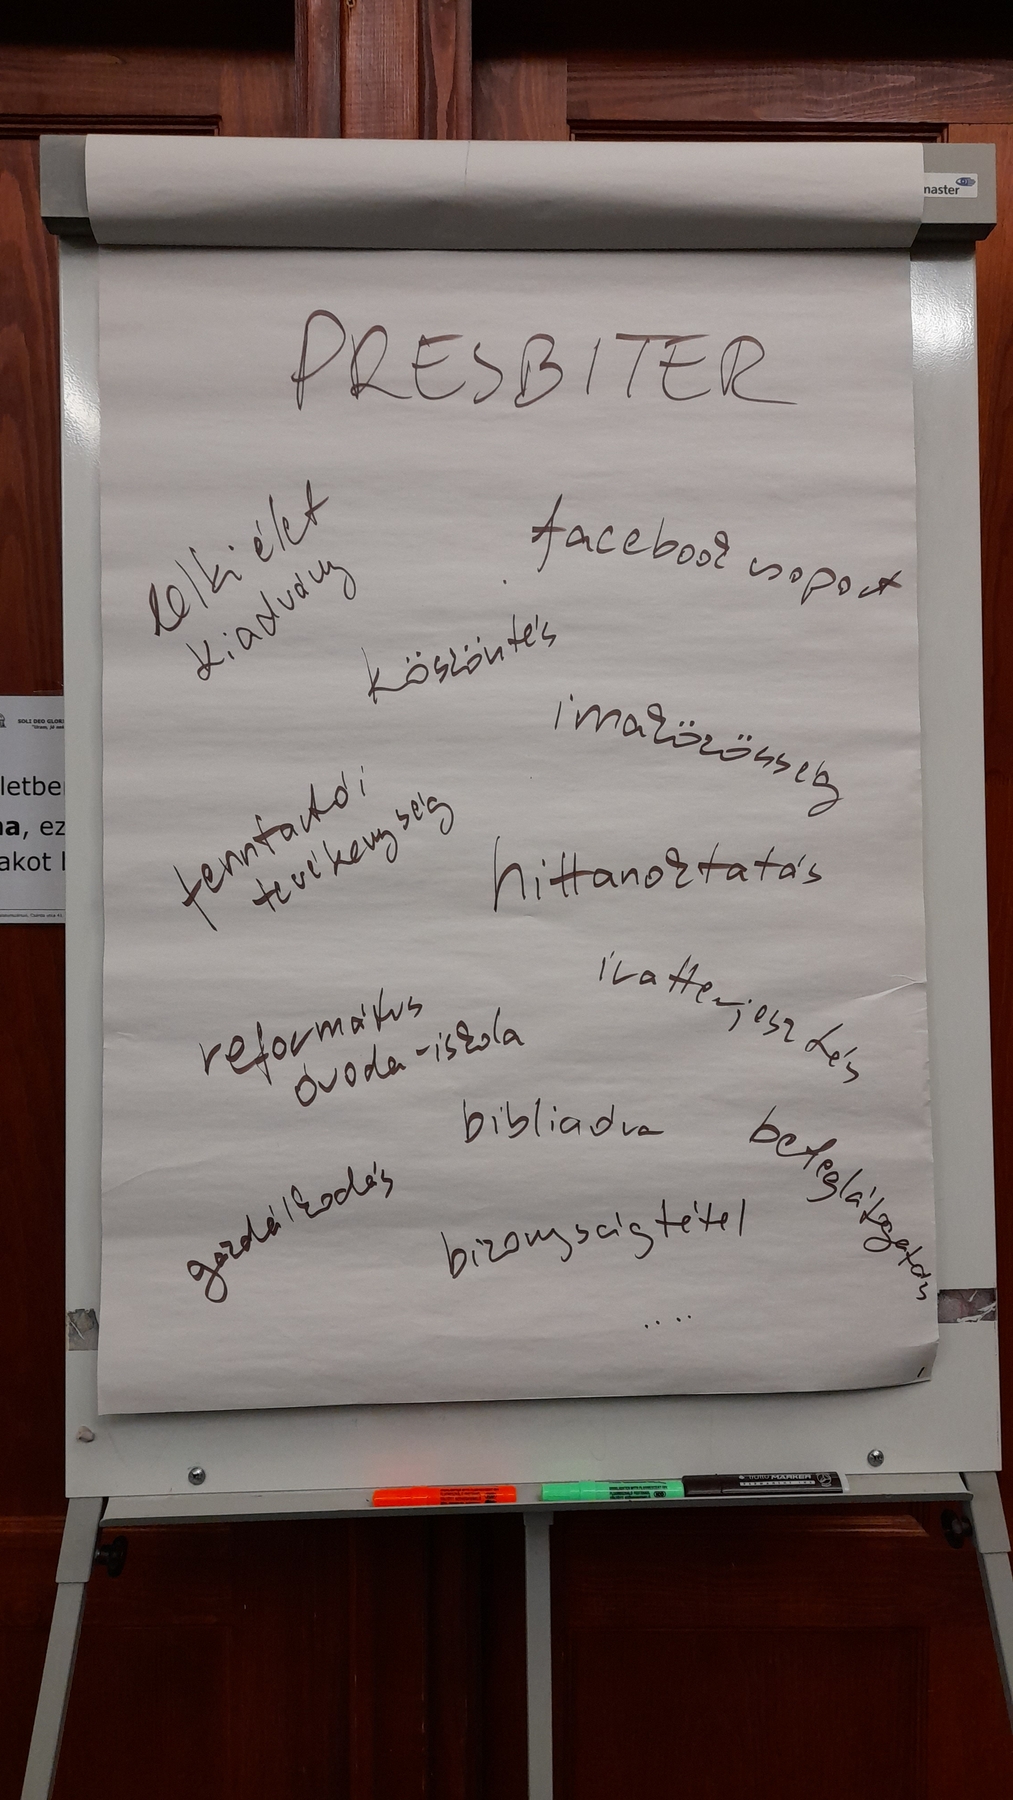 master
PRESBITER
lelki élet
kiadvány
facebook csoport
köszöntés
imaközösség
SOLI DEO GLORI
letbe
a, ez
akot
fenntartói
tevékenység
hittanoktatás
iratterjesztés
református
óvoda-iskola
bibliaóra
beteglátogatás
gazdálkodás
bizonyságtétel
....
MARKER